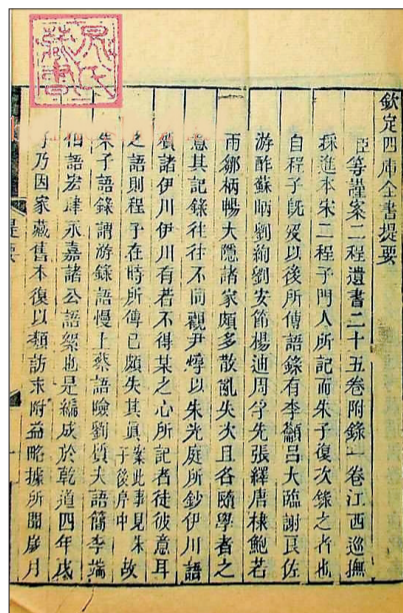 欽定四庫全書提要
臣等謹案二程遺書二十五卷附錄一卷江西巡撫
採進本宋二程子門人所記而朱子復次錄之者也
自程子旣歿以後所傳語錄有李籲呂大臨謝良佐
游酢蘇昞劉絢劉安節楊迪周孚先張繹唐棣鮑若
雨鄒柄暢大隱諸家頗多散亂失次且各隨學者之
意其記錄往往不同觀尹焞以朱光庭所鈔伊川語
質諸伊川伊川有若不得某之心所記者徒彼意耳
之語則程子在時所傳已頗失其眞案此事見朱子後序中故
朱子語錄謂游錄語慢上蔡語險劉質夫語簡李端
伯語宏肆永嘉諸公語絮也是編成於乾道四年戊
子乃因家藏舊本復以類訪求附益略據所聞歲月
提要
藏書